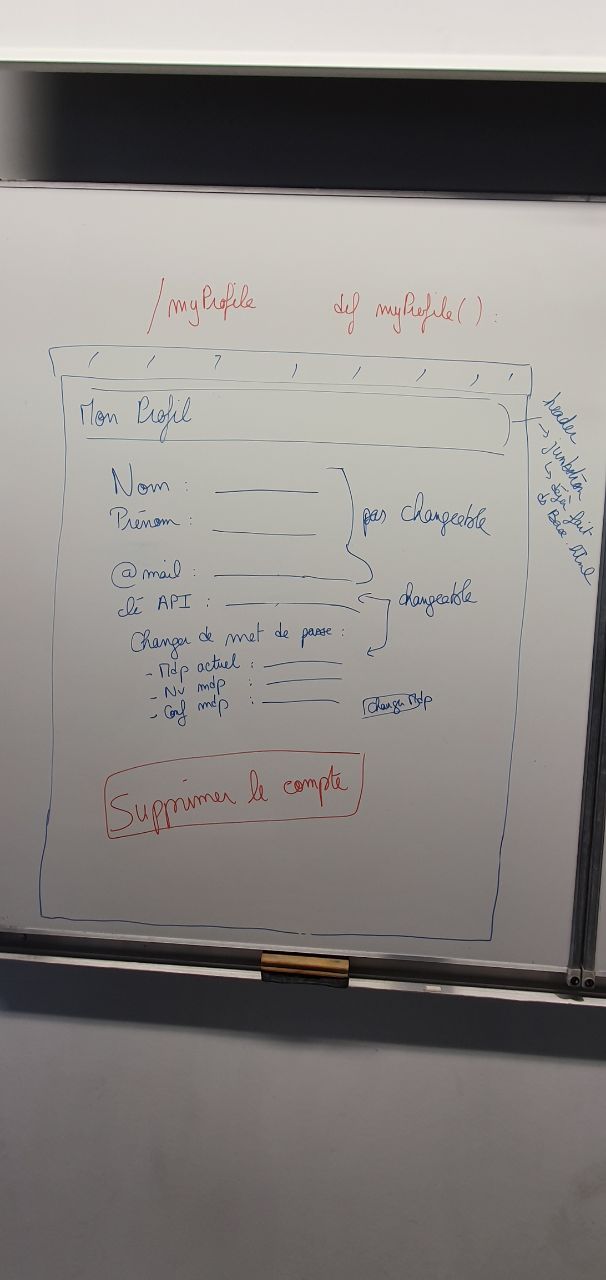 /myProfile def myProfile():
Mon Profil
header
→ jumbotron
↳ déjà fait
ds Base.html
Nom :
Prénom :
pas changeable
@mail :
clé API :
changeable
Changer de mot de passe :
- Mdp actuel :
- Nv mdp :
- Conf mdp :
Changer Mdp
Supprimer le compte